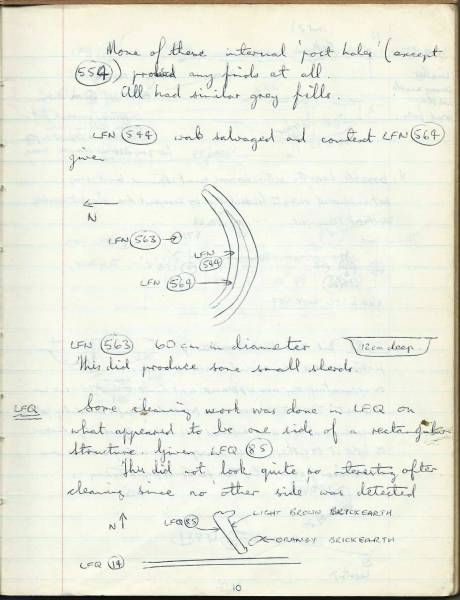 None of these internal 'post holes' (except
554) produced any finds at all.
All had similar grey fills.
LFN 544 was salvaged and context LFN 564
given
N
LFN 563
LFN
544
LFN 564
LFN 563 60 cm in diameter 12cm deep
This did produce some small sherds.
LFQ Some cleaning work was done in LFQ on
what appeared to be one side of a rectangular
structure. Given LFQ 85
This did not look quite so interesting after
cleaning since no 'other side' was detected
N LFQ 85 LIGHT BROWN BRICKEARTH
ORANGY BRICKEARTH
LFQ 14
10